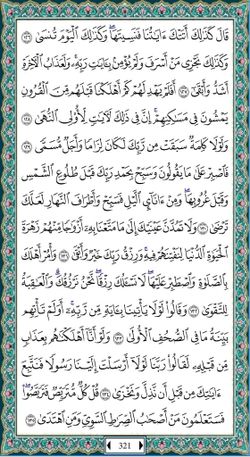 قَالَ كَذَٰلِكَ أَتَتْكَ ءَايَٰتُنَا فَنَسِيتَهَا ۖ وَكَذَٰلِكَ ٱلْيَوْمَ تُنسَىٰ ١٢٦
وَكَذَٰلِكَ نَجْزِى مَنْ أَسْرَفَ وَلَمْ يُؤْمِنۢ بِـَٔايَٰتِ رَبِّهِۦ ۚ وَلَعَذَابُ ٱلْـَٔاخِرَةِ
أَشَدُّ وَأَبْقَىٰٓ ١٢٧ أَفَلَمْ يَهْدِ لَهُمْ كَمْ أَهْلَكْنَا قَبْلَهُم مِّنَ ٱلْقُرُونِ
يَمْشُونَ فِى مَسَٰكِنِهِمْ ۗ إِنَّ فِى ذَٰلِكَ لَـَٔايَٰتٍ لِّأُو۟لِى ٱلنُّهَىٰ ١٢٨
وَلَوْلَا كَلِمَةٌ سَبَقَتْ مِن رَّبِّكَ لَكَانَ لِزَامًا وَأَجَلٌ مُّسَمًّى ١٢٩
فَٱصْبِرْ عَلَىٰ مَا يَقُولُونَ وَسَبِّحْ بِحَمْدِ رَبِّكَ قَبْلَ طُلُوعِ ٱلشَّمْسِ
وَقَبْلَ غُرُوبِهَا ۖ وَمِنْ ءَانَآئِ ٱلَّيْلِ فَسَبِّحْ وَأَطْرَافَ ٱلنَّهَارِ لَعَلَّكَ
تَرْضَىٰ ١٣٠ وَلَا تَمُدَّنَّ عَيْنَيْكَ إِلَىٰ مَا مَتَّعْنَا بِهِۦٓ أَزْوَٰجًا مِّنْهُمْ زَهْرَةَ
ٱلْحَيَوٰةِ ٱلدُّنْيَا لِنَفْتِنَهُمْ فِيهِ ۚ وَرِزْقُ رَبِّكَ خَيْرٌ وَأَبْقَىٰ ١٣١ وَأْمُرْ أَهْلَكَ
بِٱلصَّلَوٰةِ وَٱصْطَبِرْ عَلَيْهَا ۖ لَا نَسْـَٔلُكَ رِزْقًا ۖ نَّحْنُ نَرْزُقُكَ ۗ وَٱلْعَٰقِبَةُ
لِلتَّقْوَىٰ ١٣٢ وَقَالُوا۟ لَوْلَا يَأْتِينَا بِـَٔايَةٍ مِّن رَّبِّهِۦٓ ۚ أَوَلَمْ تَأْتِهِم
بَيِّنَةُ مَا فِى ٱلصُّحُفِ ٱلْأُولَىٰ ١٣٣ وَلَوْ أَنَّآ أَهْلَكْنَٰهُم بِعَذَابٍ
مِّن قَبْلِهِۦ لَقَالُوا۟ رَبَّنَا لَوْلَآ أَرْسَلْتَ إِلَيْنَا رَسُولًا فَنَتَّبِعَ
ءَايَٰتِكَ مِن قَبْلِ أَن نَّذِلَّ وَنَخْزَىٰ ١٣٤ قُلْ كُلٌّ مُّتَرَبِّصٌ فَتَرَبَّصُوا۟ ۖ
فَسَتَعْلَمُونَ مَنْ أَصْحَٰبُ ٱلصِّرَٰطِ ٱلسَّوِىِّ وَمَنِ ٱهْتَدَىٰ ١٣٥
321